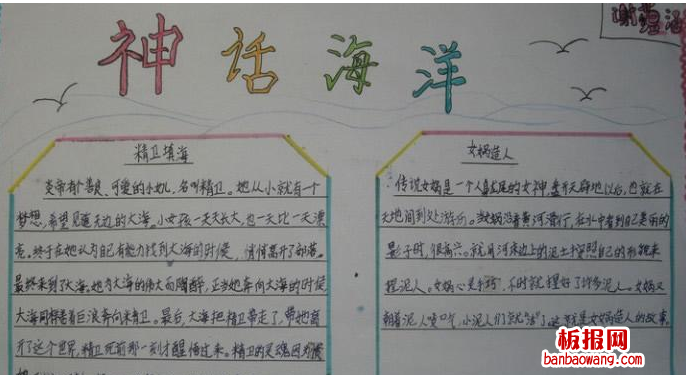 神话海洋
精卫填海
炎帝有个善良、可爱的小女儿,名叫精卫。她从小就有一个
梦想,希望见无边的大海。小女孩一天天长大,也一天比一天漂
亮。终于在她认为自己有能力找到大海的时候,悄悄离开了部落。
最终来到了大海。她为大海的伟大而陶醉,正当她奔向大海的时候
大海同样卷着巨浪奔向精卫。最后,大海把精卫带走了,带她离
开了这个世界,精卫死前那一刻才醒悟过来。精卫的灵魂因为
女娲造人
传说女娲是一个人首龙尾的女神,盘古开天辟地以后,她就在
天地间到处游历。当女娲沿着黄河滑行,在水中看到自己美丽的
影子时,很高兴。就用河床边上的泥土按照自己的形貌来
捏泥人。女娲心灵手巧,不时就捏好了许多泥人。女娲又
朝着泥人喷口气,小泥人们就“活”了。这就是女娲造人的故事。
板报网
banbaowang.com